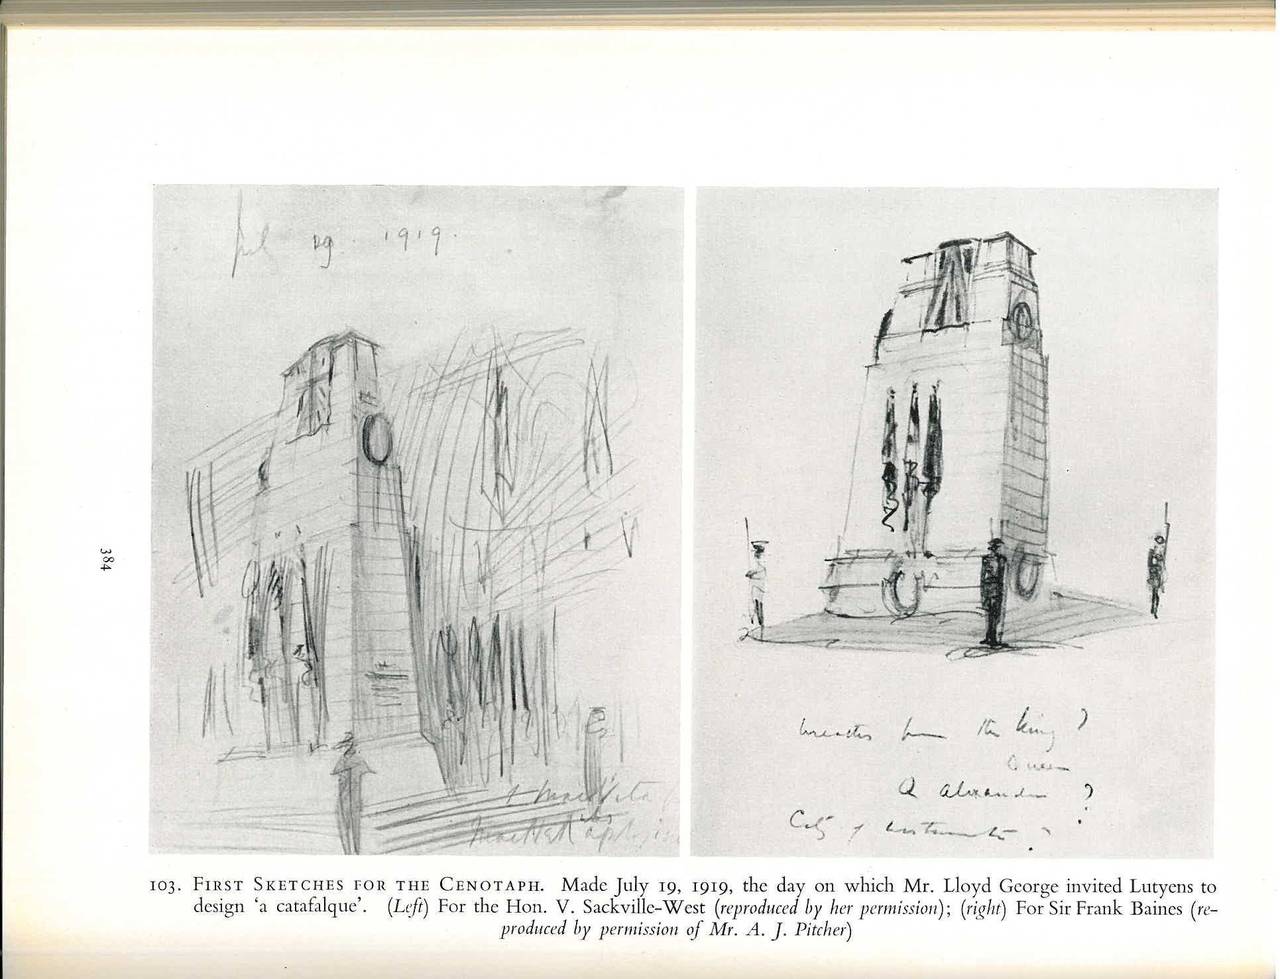 July 19. 1919.
wreaths from the King ?
Queen
Q Alexandra ?
City of Westminster ?
384
103. FIRST SKETCHES FOR THE CENOTAPH. Made July 19, 1919, the day on which Mr. Lloyd George invited Lutyens to
design 'a catafalque'. (Left) For the Hon. V. Sackville-West (reproduced by her permission); (right) For Sir Frank Baines (re-
produced by permission of Mr. A. J. Pitcher)